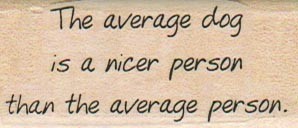 The average dog
is a nicer person
than the average person.